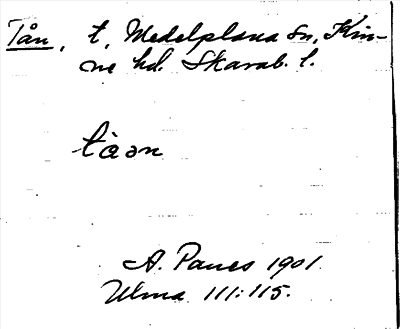 Tån, t, Medelplana sn, Kin-
ne hd. Skarab. l.
tàən
A. Paues 1901
Ulma 111:115.